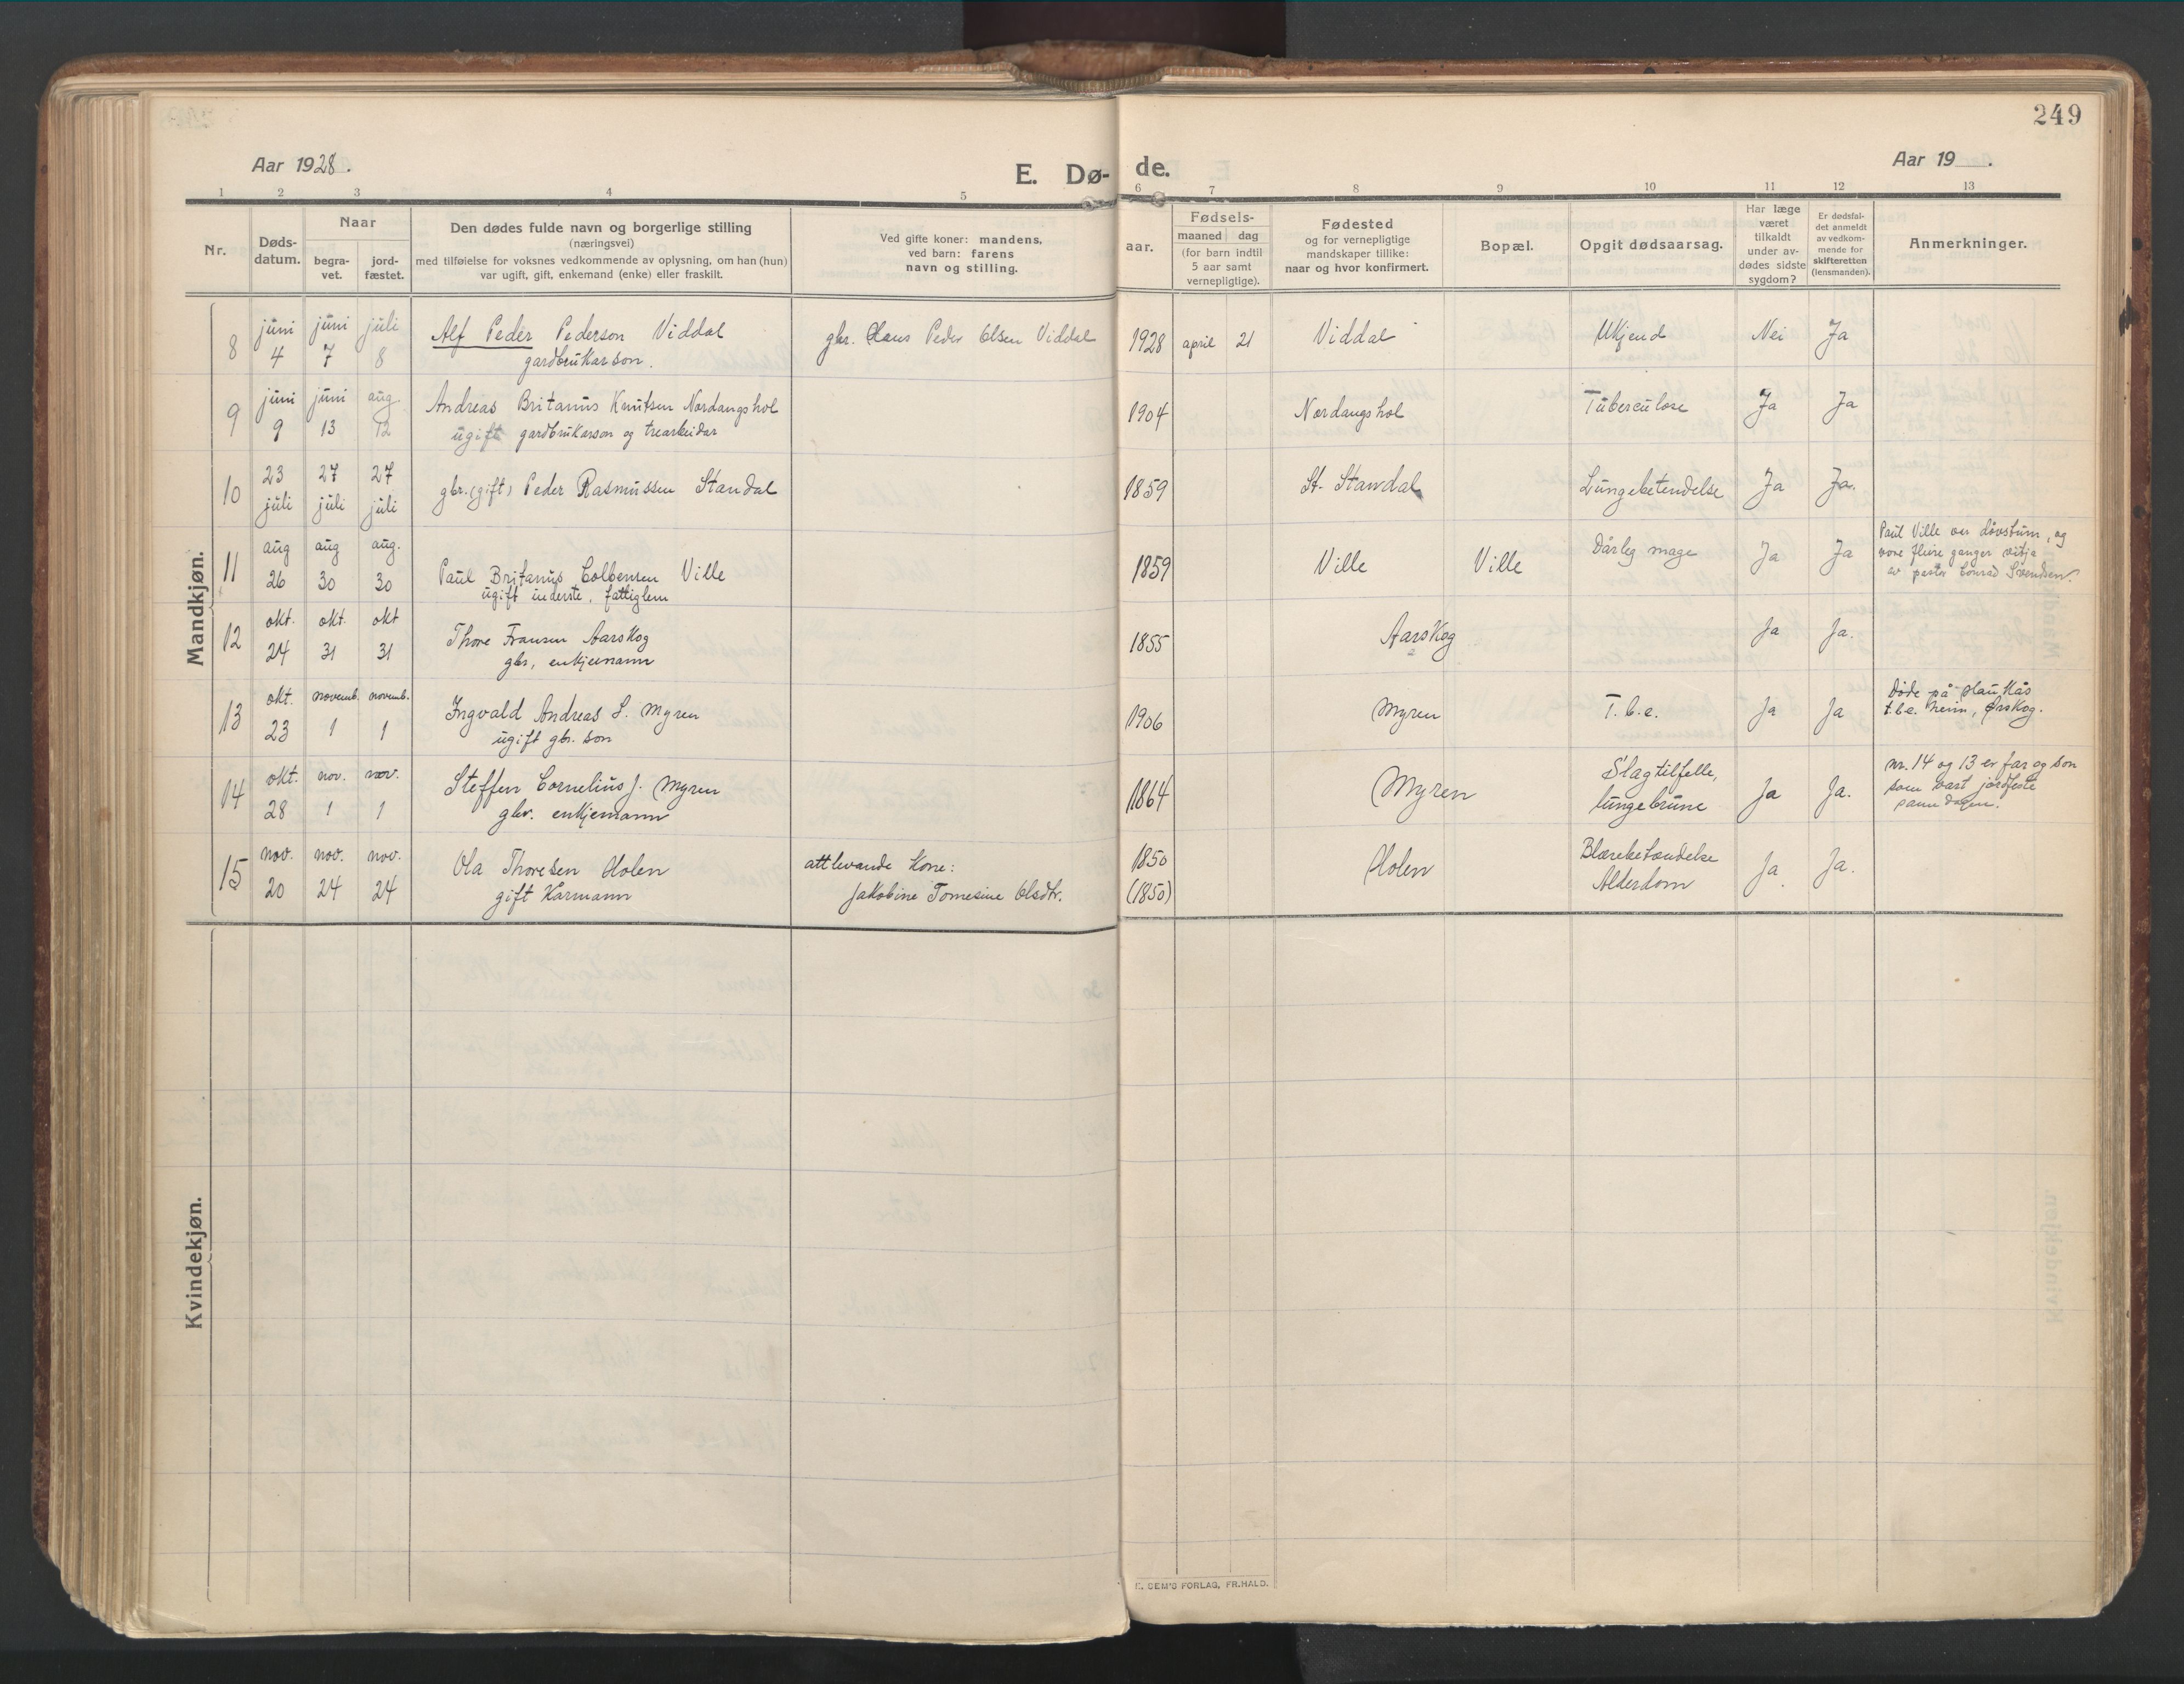 249
Aar 1928.
E. Dø-
de.
Aar 19 .
1 2 3 4 5 6 7 8 9 10 11 12 13
Nr.
Døds-
datum.
Naar
begra-
vet.
jord-
fæstet.
Den dødes fulde navn og borgerlige stilling
(næringsvei)
med tilføielse for voksnes vedkommende av oplysning, om han (hun)
var ugift, gift, enkemand (enke) eller fraskilt.
Ved gifte koner: mandens,
ved barn: farens
navn og stilling.
aar.
Fødsels-
maaned dag
(for barn indtil
5 aar samt
vernepligtige).
Fødested
og for vernepligtige
mandskaper tillike:
naar og hvor konfirmert.
Bopæl.
Opgit dødsaarsag.
Har læge
været
tilkaldt
under av-
dødes sidste
sygdom?
Er dødsfal-
det anmeldt
av vedkom-
mende for
skifteretten
(lensmanden).
Anmerkninger.
Mandkjøn.
juni juni juli Alf Peder Pederson Viddal gbr. Claus Peder Olsen Viddal 1928 april 21 Viddal Ukjend Nei Ja
8 4 7 8 gardbrukarson.
juni juni aug. Andreas Britanus Knutsen Nordangshol 1904 Nordangshol Tuberculose Ja Ja
9 9 13 12 ugift gardbrukarson og trearbeidar
10 23 27 27 gbr. (gift) Peder Rasmussen Standal 1859 St. Standal Lungebetendelse Ja Ja.
juli juli juli
11 aug aug aug. Paul Britanus Colbensen Ville 1859 Ville Ville Dårleg mage Ja Ja
26 30 30 ugift inderste, fattiglem
Paul Ville var døvstum, og
vore fleire ganger vitja
av pastor Conrad Svendsen.
12 okt. okt. okt Thore Fransen Aarskog 1855 Aarskog Ja Ja.
24 31 31 gbr, enkjemann
13 okt. novemb. novemb. Ingvald Andreas S. Myren 1906 Myren T.b.c. Ja Ja
23 1 1 ugift gbr. son
Døde på
t.b.c. heim, Ørskog.
14 okt. nov. nov. Steffen Cornelius J. Myren 1864 Myren Slagtilfelle, Ja Ja.
28 1 1 gbr. enkjemann lungebrune
nr. 14 og 13 er far og son
som vart jordfeste
same dagen.
15 nov. nov. nov. Ola Thoresen Holen attlevande kone: 1850 Holen Blærebetændelse Ja Ja.
20 24 24 gift Karmann Jakobine Tomesine Olsdtr. (1850) Alderdom
Kvindekjøn.
E. SEM'S FORLAG, FR.HALD.